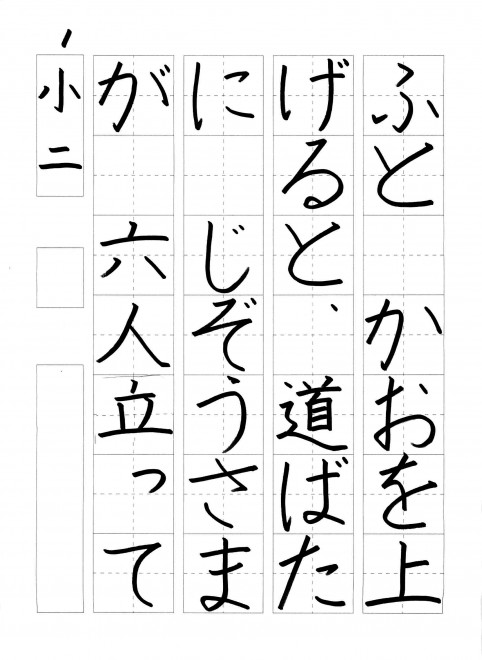 ふと　かおを上
げると、道ばた
に　じぞうさま
が　六人立って
小二